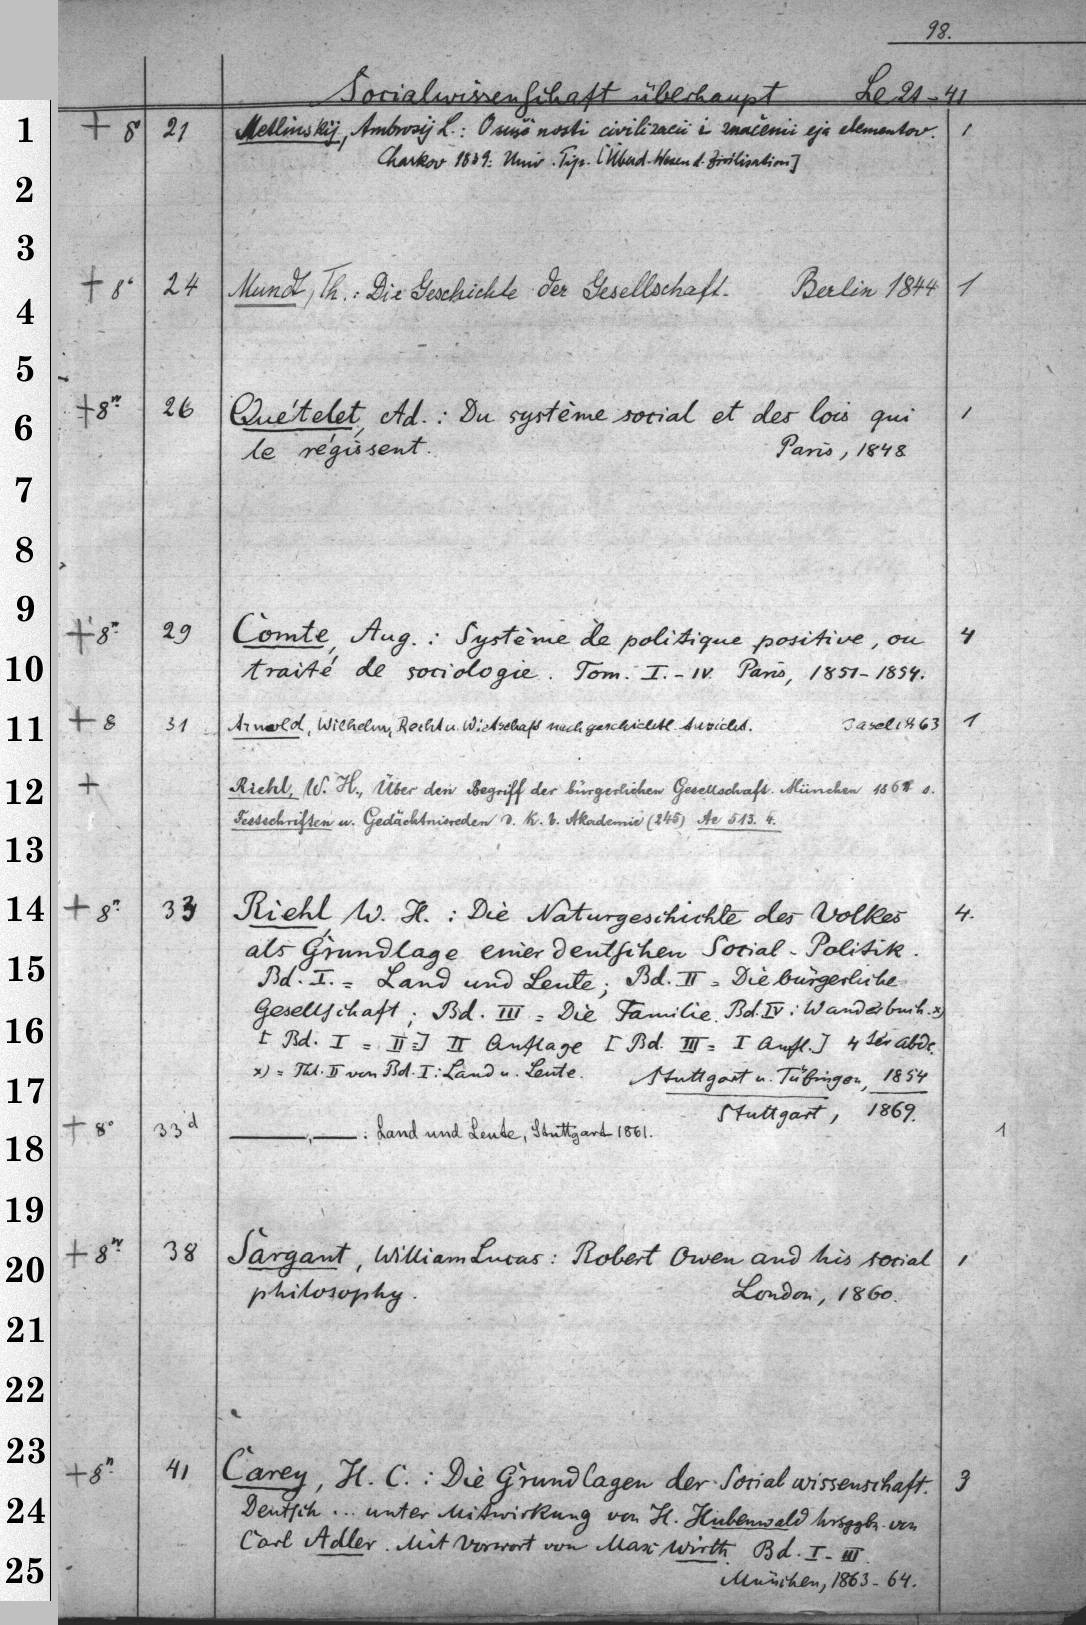 98.
Socialwissenschaft überhaupt Le 21-41
1 + 8° 21 Metlinskij, Ambrosij L.: O suščnosti civilizacii i značenii eja elementov. 1
Charkov 1839: Univ. Tip. [Über d. Wesen d. Zivilisation]
2
3
+ 8° 24 Mundt, Th.: Die Geschichte der Gesellschaft. Berlin 1844 1
4
5
+ 8° 26 Quételet, Ad.: Du système social et des lois qui 1
6
le régissent. Paris, 1848
7
8
9
+ 8° 29 Comte, Aug.: Système de politique positive, ou 4
10 traité de sociologie. Tom. I.-IV. Paris, 1851-1854.
11 + 8 31 Arnold, Wilhelm, Recht u. Wirtschaft nach geschichtl. Ansicht. Basel 1863 1
12 + Riehl, W. H., Über den Begriff der bürgerlichen Gesellschaft. München 1864 s.
Festschriften u. Gedächtnisreden d. K. b. Akademie (245) Ac 513. 4.
13
14 + 8° 33 Riehl, W. H.: Die Naturgeschichte des Volkes 4.
als Grundlage einer deutschen Social-Politik.
15 Bd. I. = Land und Leute; Bd. II = Die bürgerliche
Gesellschaft; Bd. III = Die Familie. Bd. IV: Wanderbuch. x)
16 [Bd. I = II =] II Auflage [Bd. III = I Aufl.] 4
x) = Thl. II von Bd. I: Land u. Leute. Stuttgart u. Tübingen, 1854
17
Stuttgart, 1869.
+ 8° 33d ———, ——: Land und Leute, Stuttgart 1861. 1
18
19
+ 8° 38 Sargant, William Lucas: Robert Owen and his social 1
20
philosophy. London, 1860.
21
22
23
+ 8° 41 Carey, H. C.: Die Grundlagen der Socialwissenschaft. 3
24 Deutsch ... unter Mitwirkung von H. Hubenwald hrsggbn. von
Carl Adler. Mit Vorwort von Max Wirth. Bd. I-III.
25
München, 1863-64.